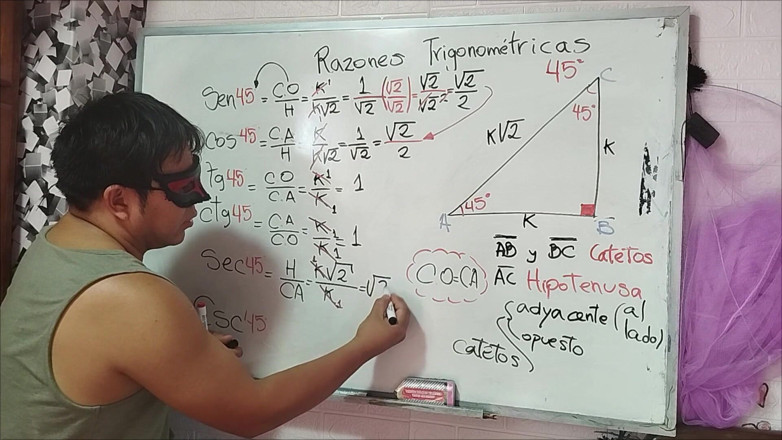 Razones Trigonométricas
Sen45 = CO/H = K/K√2 = 1/√2 (√2/√2) = √2/√2² = √2/2
Cos45 = CA/H = K/K√2 = 1/√2 = √2/2
tg45 = CO/CA = K/K = 1
Ctg45 = CA/CO = K/K = 1
Sec45 = H/CA = K√2/K = √2
Csc45
45°
C
45°
K√2
K
A
45°
K
B
AB y BC Catetos
CO=CA
AC Hipotenusa
Catetos
adyacente (al lado)
opuesto